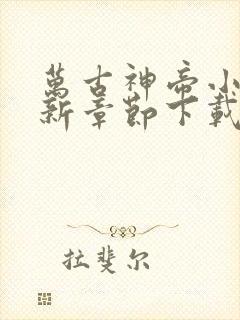 萬古神帝小
新章節下載
拉斐尔